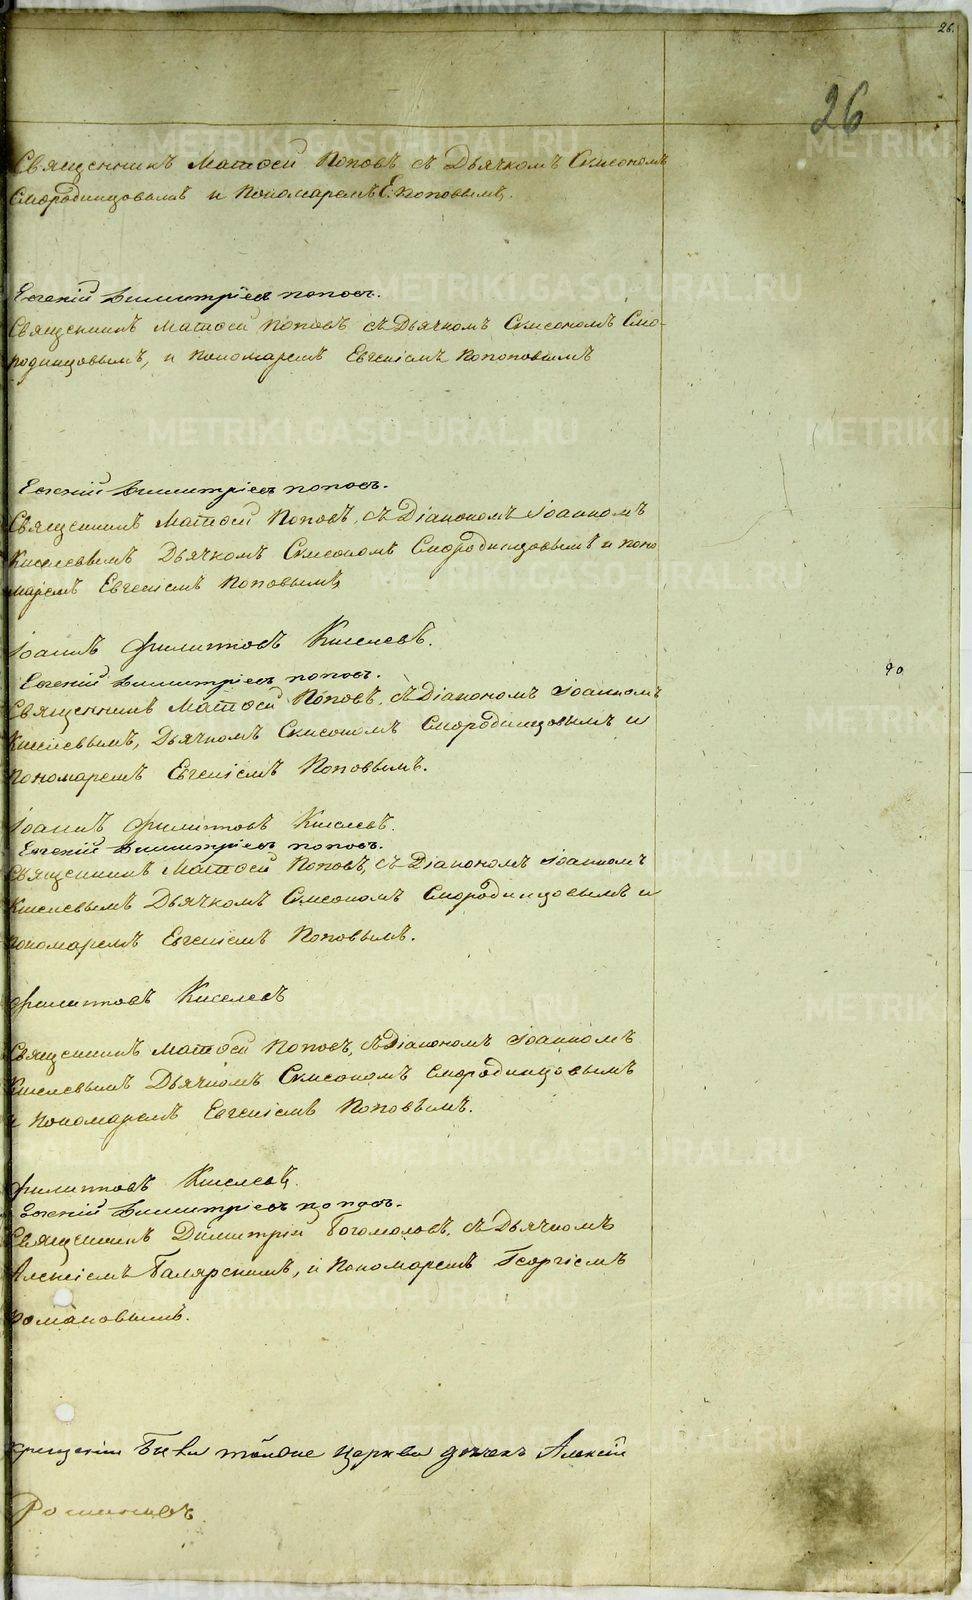 26.
26
Священникъ Матѳей Поповъ съ Дьячкомъ Симеономъ
Смородинцовымъ и Пономаремъ Е. Поповымъ.
Евгеній Димитріевъ поповъ.
Священникъ Матѳей Поповъ съ Дьячкомъ Симеономъ Смо-
родинцовымъ, и Пономаремъ Евгеніемъ Попоповымъ
Евгеній Димитріевъ поповъ.
Священникъ Матѳей Поповъ, съ Діакономъ Іоанномъ
Киселевымъ Дьячкомъ Симеономъ Смородинцовымъ и поно
маремъ Евгеніемъ Поповымъ,
Іоаннъ Филипповъ Киселевъ.
Евгеній Димитріевъ поповъ.
90
Священникъ Матѳей Поповъ, съ Діакономъ Іоанномъ
Киселевымъ, Дьячкомъ Симеономъ Смородинцовымъ и
Пономаремъ Евгеніемъ Поповымъ.
Іоаннъ Филипповъ Киселевъ.
Евгеній Димитріевъ поповъ.
Священникъ Матѳей Поповъ, съ Діакономъ Іоанномъ
Киселевымъ Дьячкомъ Симеономъ Смородинцовымъ и
пономаремъ Евгеніемъ Поповымъ.
Филипповъ Киселевъ
Священникъ Матѳей Поповъ, съ Діакономъ Іоанномъ
Киселевымъ Дьячкомъ Симеономъ Смородинцовымъ
и Пономаремъ Евгеніемъ Поповымъ.
Филипповъ Киселевъ.
Евгеній Димитріевъ поповъ.
Священникъ Димитрій Богомоловъ, съ Дьячкомъ
Алексіемъ, и Пономаремъ Георгіемъ
Романовымъ.
крещеніи церкви Алексій
METRIKI.GASO-URAL.RU